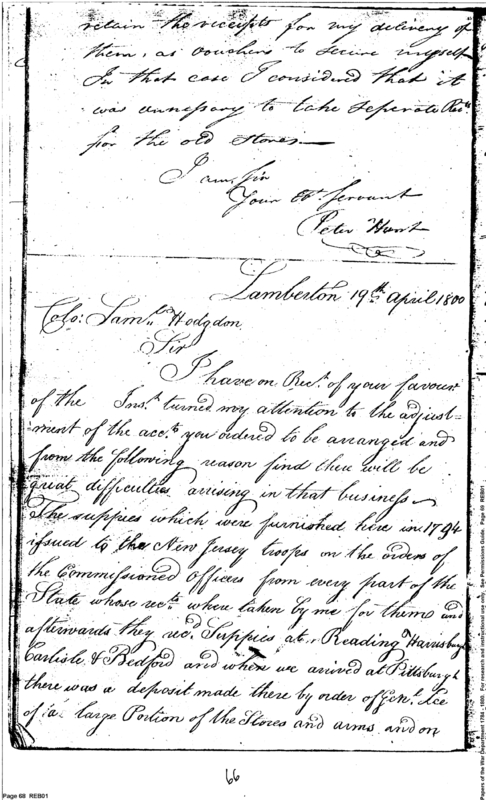 retain the receipts for my delivery of
them, as vouchers to secure myself
In that case I considered that it
was unnessary to take seperate Rects
for the old Stores—
I am Sir
Your Obt Servant
Peter Hunt
Lamberton 19th April 1800
Colo: Samll Hodgdon
Sir
I have on Rect. of your favour
of the Inst. turned my attention to the adjust-
ment of the accts. you ordered to be arranged and
from the following reason find there will be
great difficulties arising in that business—
The suppies which were furnished here in 1794
issued to the New Jersey troops on the orders of
the Commissioned Officers from every part of the
State whose rects. where taken by me for them and
afterwards they recd. Suppies at Reading Harrisburgh
Carlisle & Bedford and when we arrived at Pittsburgh
there was a deposit made there by order of Genl. Lee
of a large Portion of the Stores and arms and on
66
Page 68 REB01
Papers of the War Department 1784 - 1800. For research and instructional use only. See Permissions Guide. Page 68 REB01